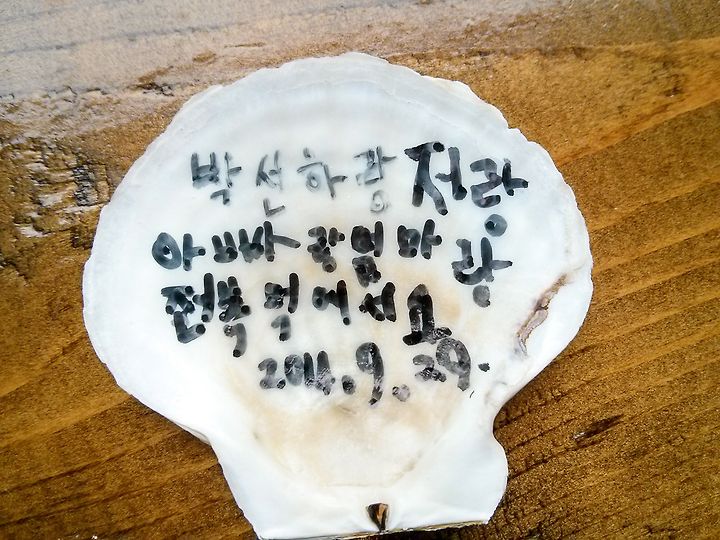 박선하랑 저랑
아빠랑 엄마랑
전복 먹에서요
2014.9.29.